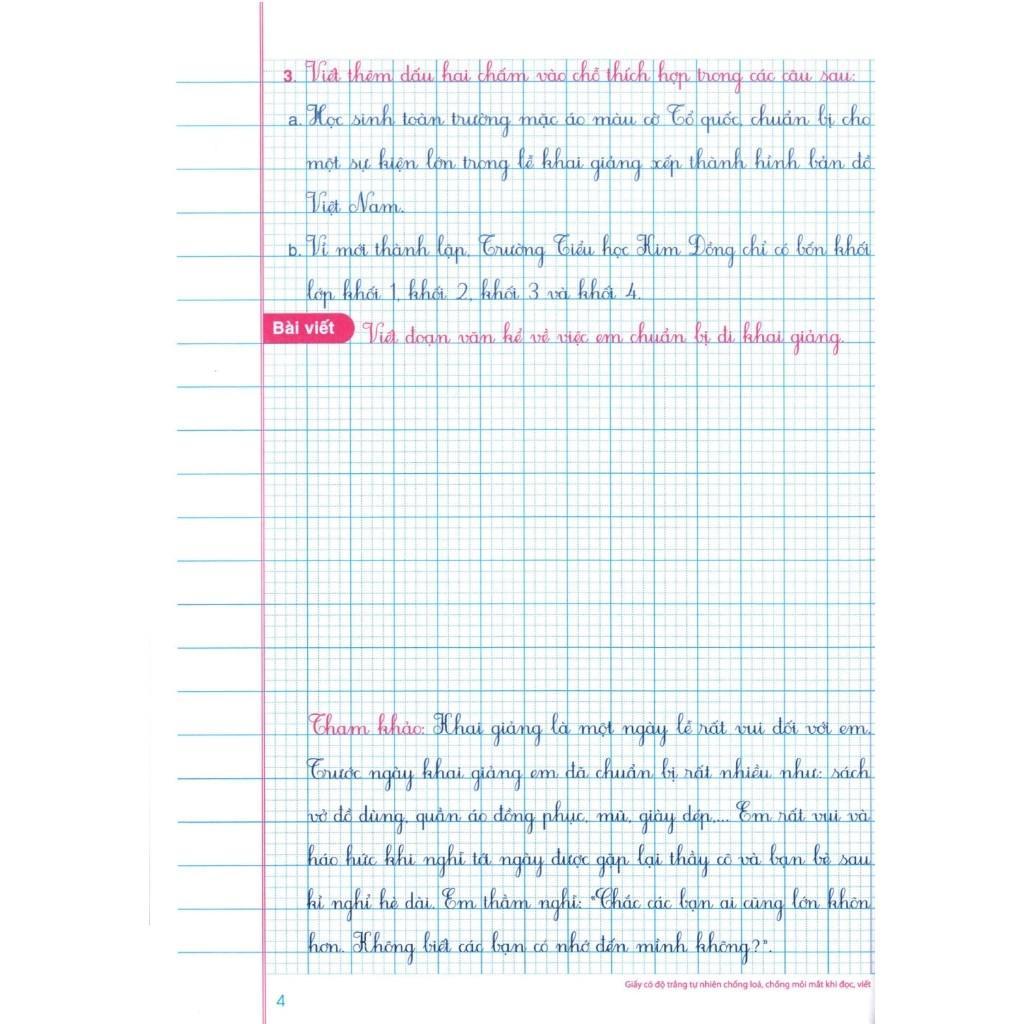 3. Viết thêm dấu hai chấm vào chỗ thích hợp trong các câu sau:
a. Học sinh toàn trường mặc áo màu cờ Tổ quốc, chuẩn bị cho
một sự kiện lớn trong lễ khai giảng xếp thành hình bản đồ
Việt Nam.
b. Vì mới thành lập, Trường Tiểu học Kim Đồng chỉ có bốn khối
lớp khối 1, khối 2, khối 3 và khối 4.
Bài viết Viết đoạn văn kể về việc em chuẩn bị đi khai giảng.
Tham khảo: Khai giảng là một ngày lễ rất vui đối với em.
Trước ngày khai giảng em đã chuẩn bị rất nhiều như: sách
vở đồ dùng, quần áo đồng phục, mũ, giày dép,... Em rất vui và
háo hức khi nghĩ tới ngày được gặp lại thầy cô và bạn bè sau
kì nghỉ hè dài. Em thầm nghĩ: "Chắc các bạn ai cũng lớn khôn
hơn. Không biết các bạn có nhớ đến mình không?".
Giấy có độ trắng tự nhiên chống loá, chống mỏi mắt khi đọc, viết
4